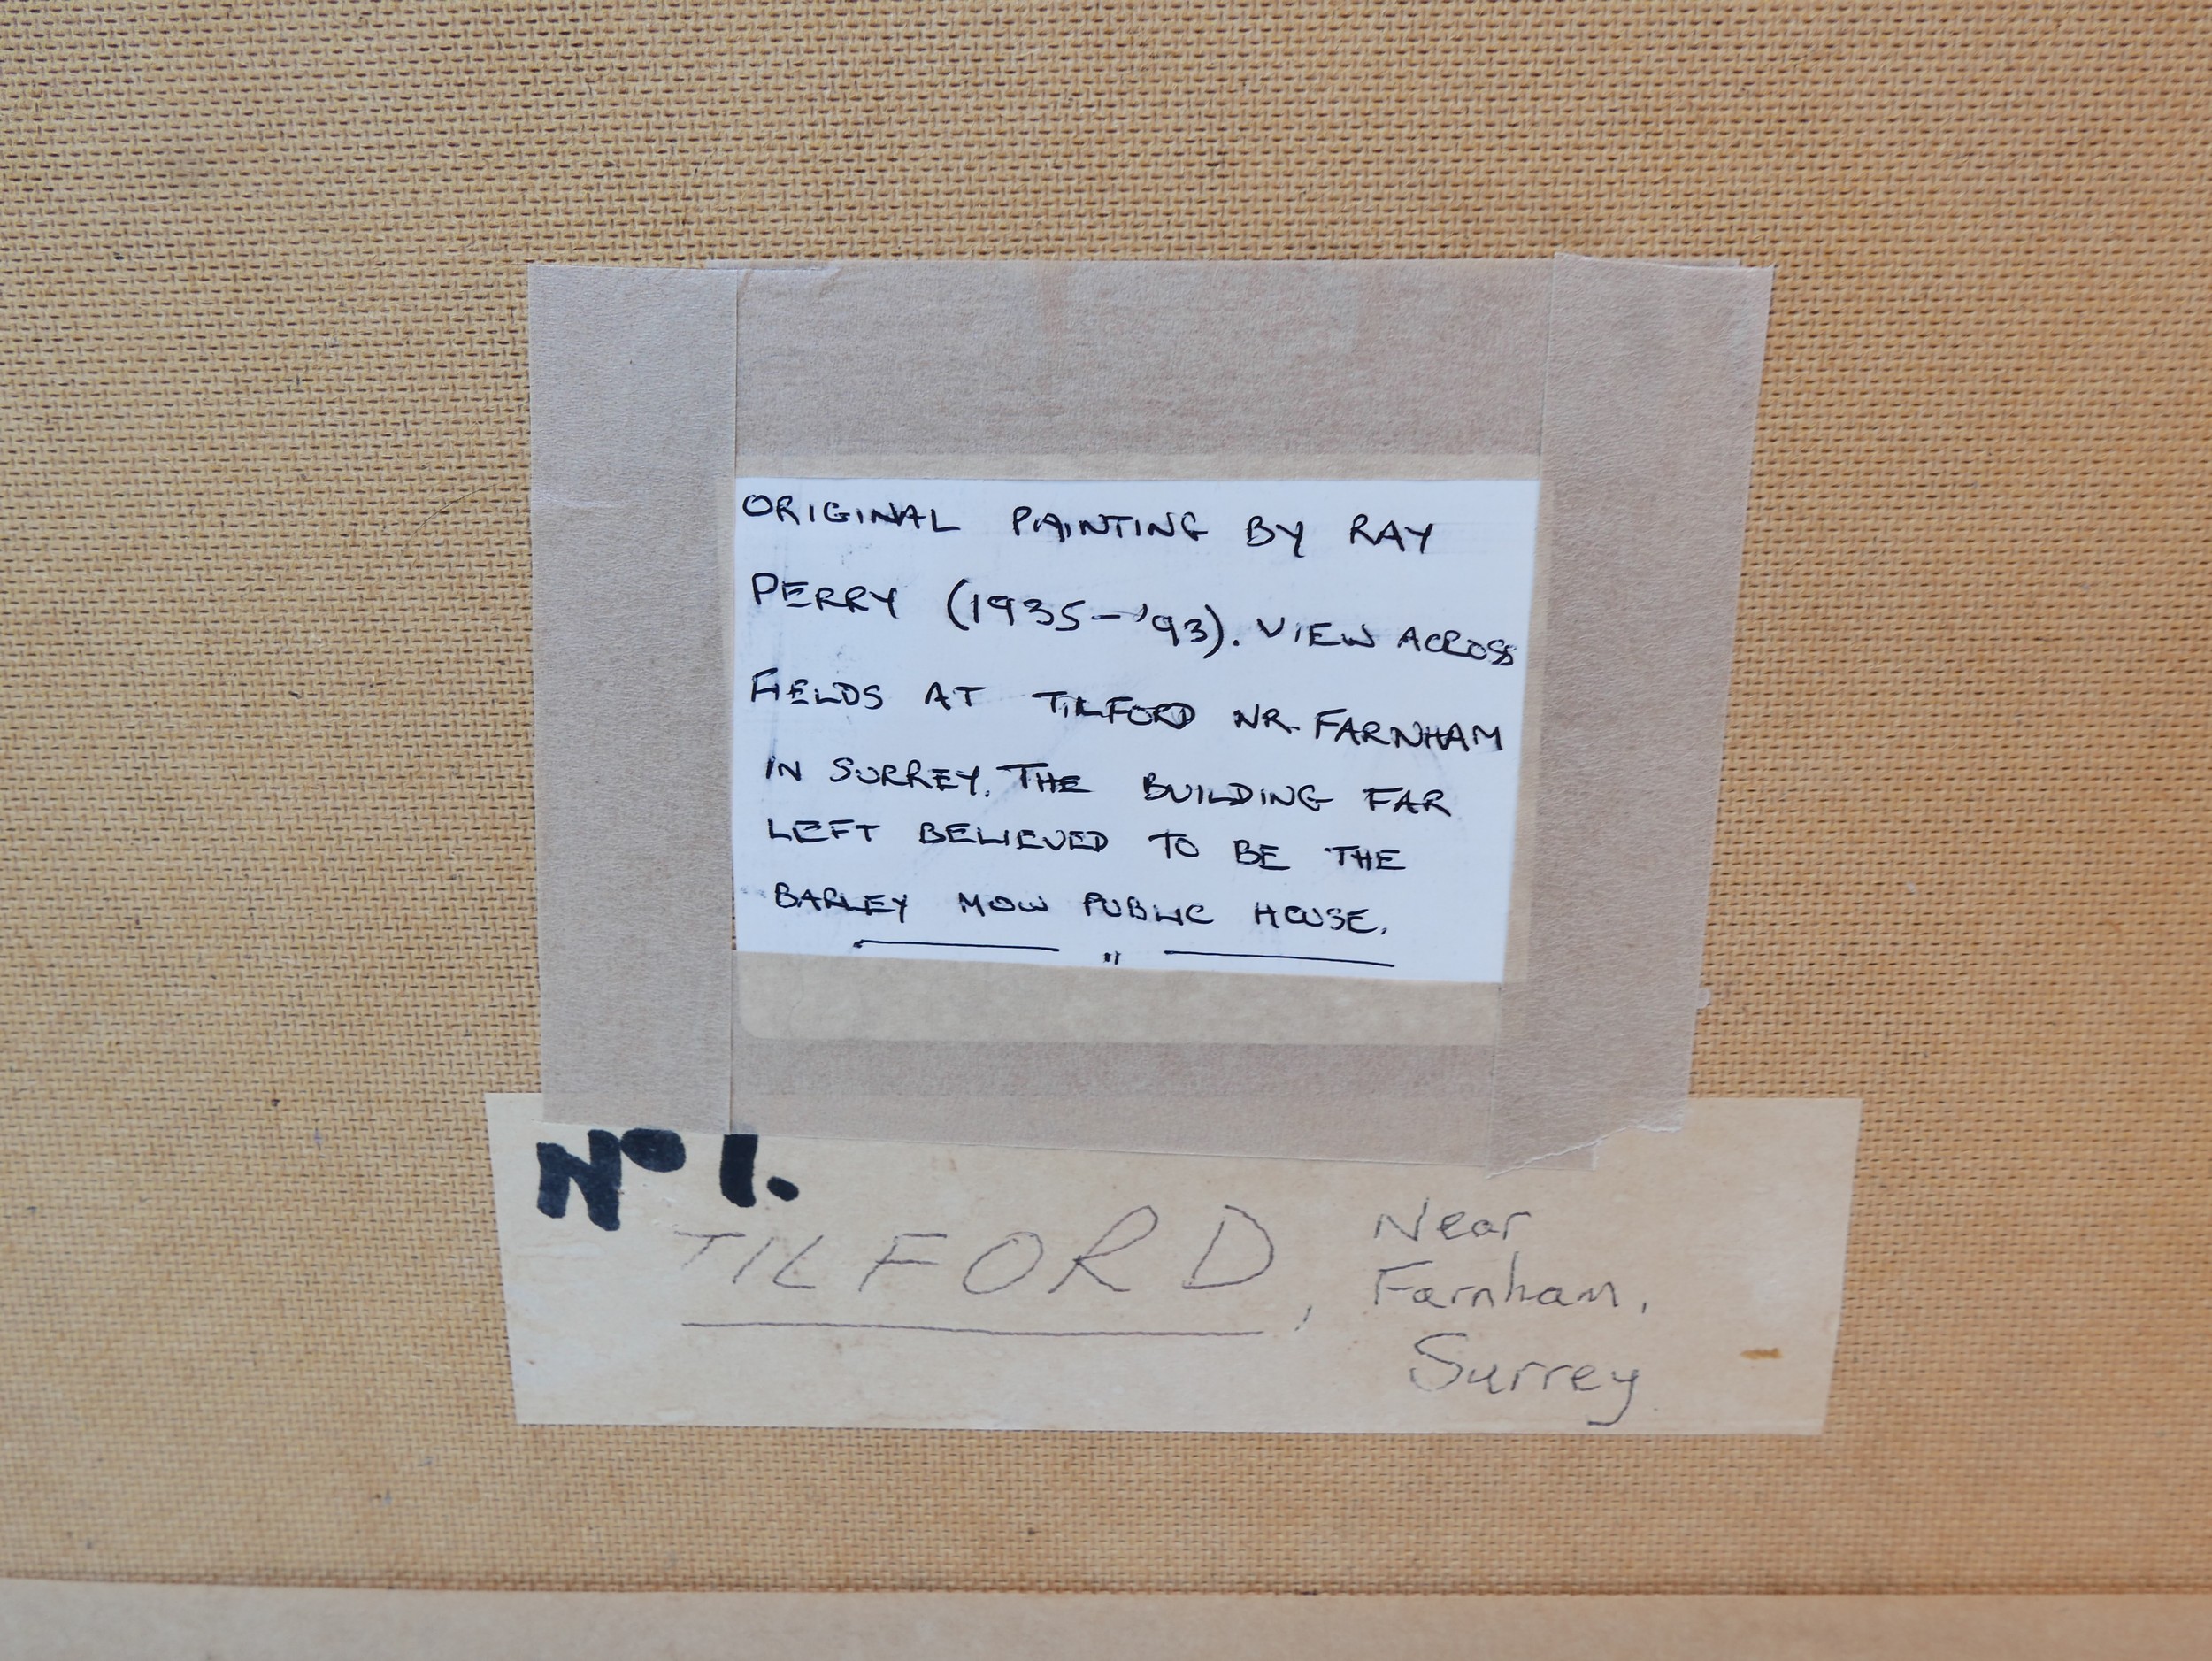 ORIGINAL PAINTING BY RAY
PERRY (1935-'93). VIEW ACROSS
FIELDS AT TILFORD NR. FARNHAM
IN SURREY. THE BUILDING FAR
LEFT BELIEVED TO BE THE
BARLEY MOW PUBLIC HOUSE.
Nº 1.
TILFORD, Near
Farnham,
Surrey